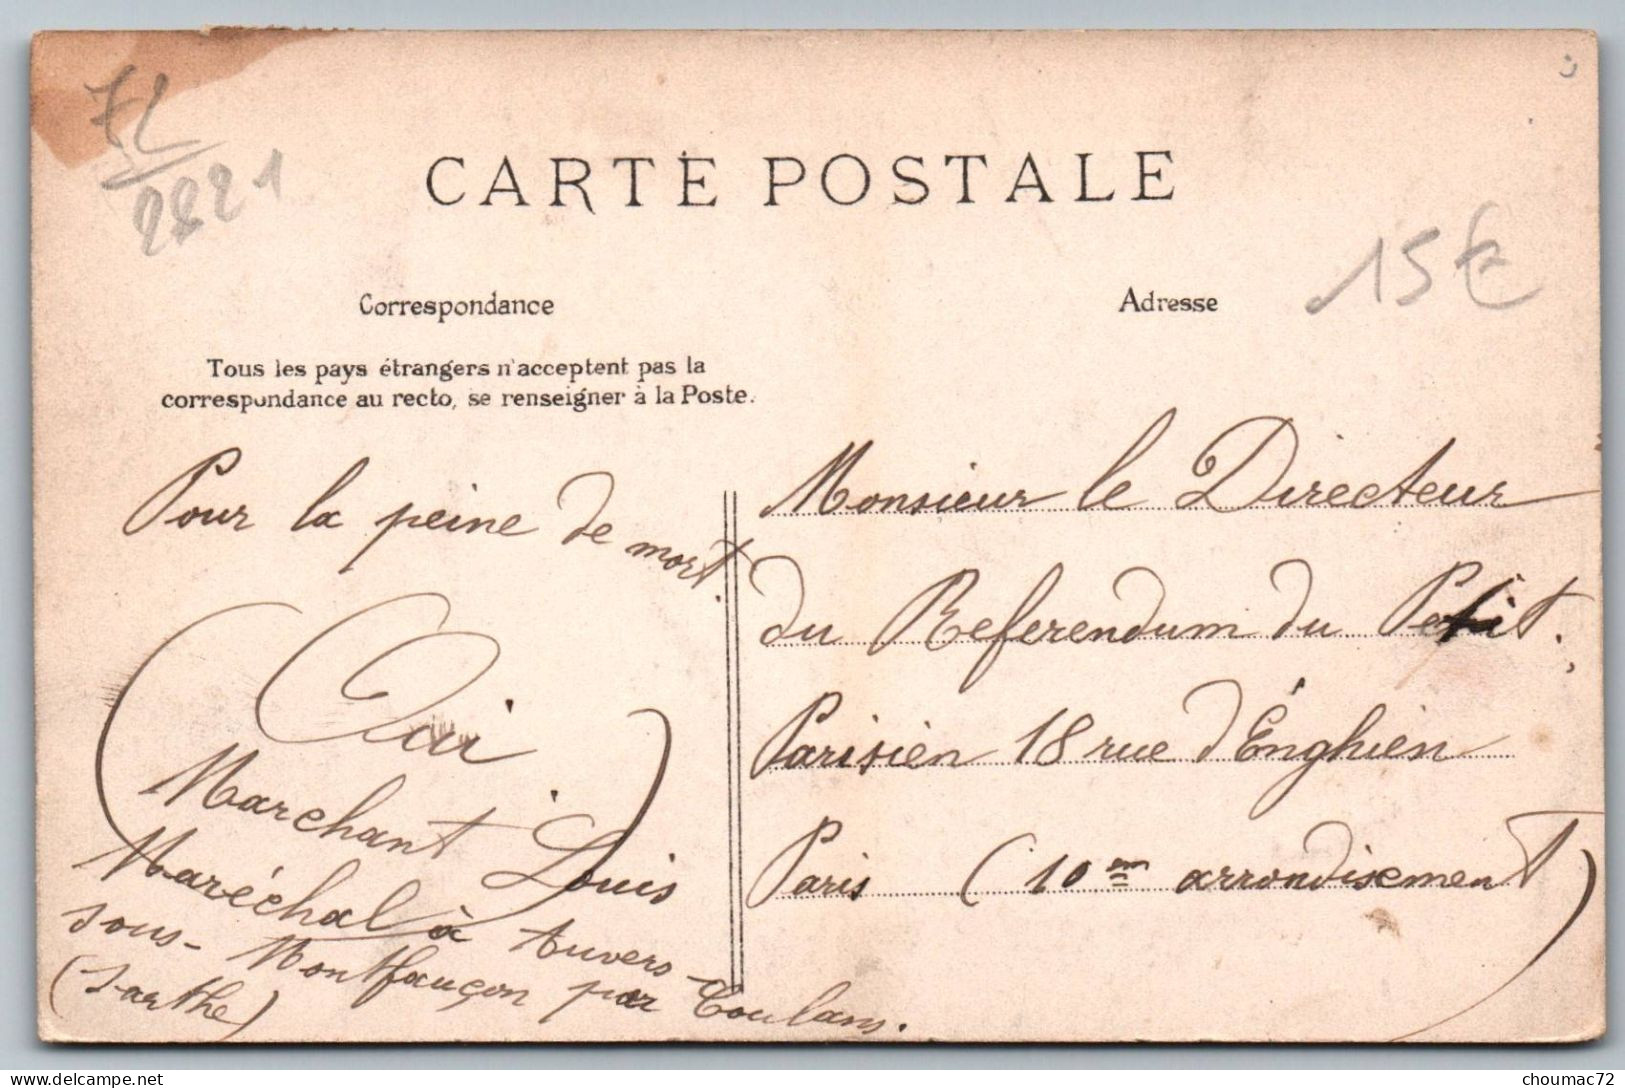 72
2821
CARTE POSTALE
15€
Correspondance
Adresse
Tous les pays étrangers n'acceptent pas la
correspondance au recto, se renseigner à la Poste.
Pour la peine de mort.
Oui.
Marchant Louis
Maréchal à Auvers-
sous-Montfauçon par Coulans.
(Sarthe)
Monsieur le Directeur
du Referendum du Petit.
Parisien 18 rue d'Énghien
Paris (10em arrondisement)
delcampe.net
choumac72